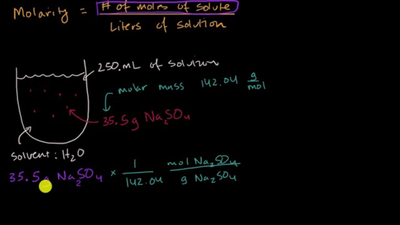 Molarity = # of moles of solute
Liters of solution
250. mL of solution
molar mass 142.04 g/mol
35.5g Na₂SO₄
solvent: H₂O
35.5g Na₂SO₄ × 1/142.04 mol Na₂SO₄/g Na₂SO₄